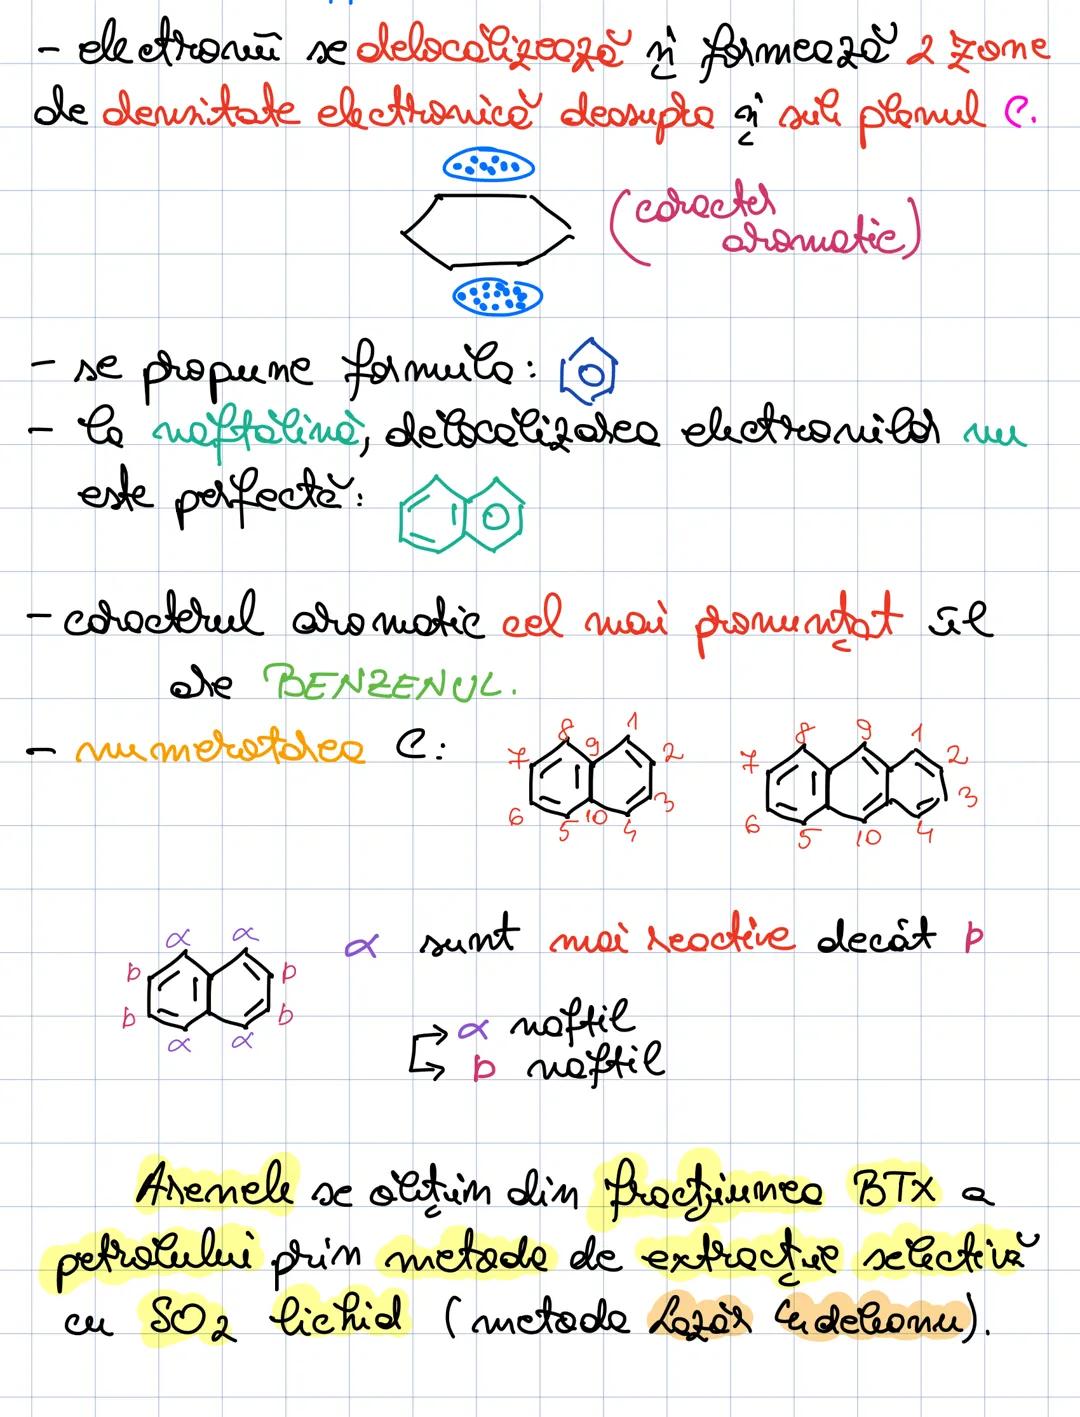 - electronii se delocalizează și formează 2 zone
de densitate electronică deasupra și sub planul C.
(caracter
aromatic)
- se propune formula:
- la naftalină, delocalizarea electronilor nu
este perfectă:
- caracterul aromatic cel mai pronunțat îl
are BENZENUL.
- numerotarea C:
8 1 8 9 1
7 9 2 7 2
6 10 3 6 3
5 4 5 10 4
α α α sunt mai reactive decât β
β β
β β α naftil
α α β naftil
Arenele se obțin din fracțiunea BTX a
petrolului prin metoda de extracție selectivă
cu SO2 lichid (metoda Lazăr Edeleanu).